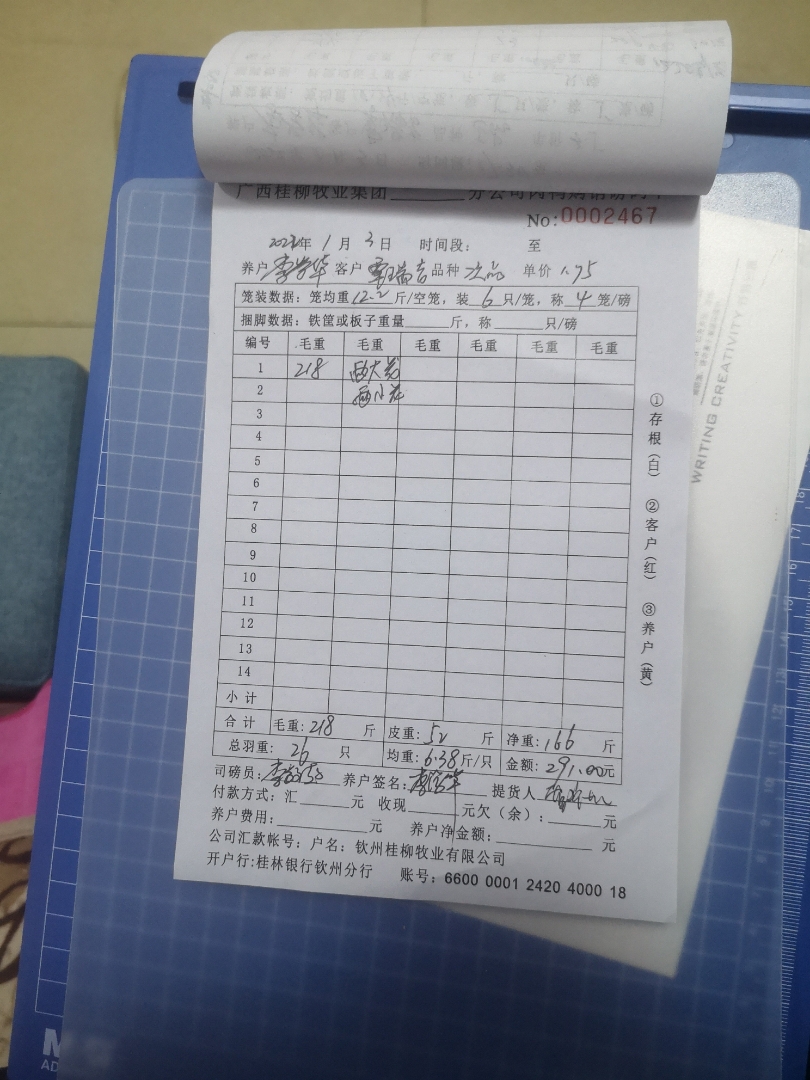 广西桂柳牧业集团______分公司肉鸭购销协议单
No:0002467
年 1 月 3 日 时间段: 至
养户 李学华 客户 覃瑞吉 品种 次品 单价 1.75
笼装数据: 笼均重 12.2 斤/空笼, 装 6 只/笼, 称 4 笼/磅
捆脚数据: 铁筐或板子重量______斤, 称______只/磅
编号 毛重 毛重 毛重 毛重 毛重 毛重
1 218 西大花
2 西小花
3
4
5
6
7
8
9
10
11
12
13
14
小 计
合 计 毛重: 218 斤 皮重: 52 斤 净重: 166 斤
总羽重: 26 只 均重: 6.38 斤/只 金额: 291.00元
司磅员: 养户签名: 李学华 提货人
付款方式: 汇______元 收现______元欠(余): ______元
养户费用: ______元 养户净金额: ______元
公司汇款帐号: 户名: 钦州桂柳牧业有限公司
开户行:桂林银行钦州分行 账号: 6600 0001 2420 4000 18
①存根(白) ②客户(红) ③养户(黄)
WRITING CREATIVITY
18
17
16
15
M
AD